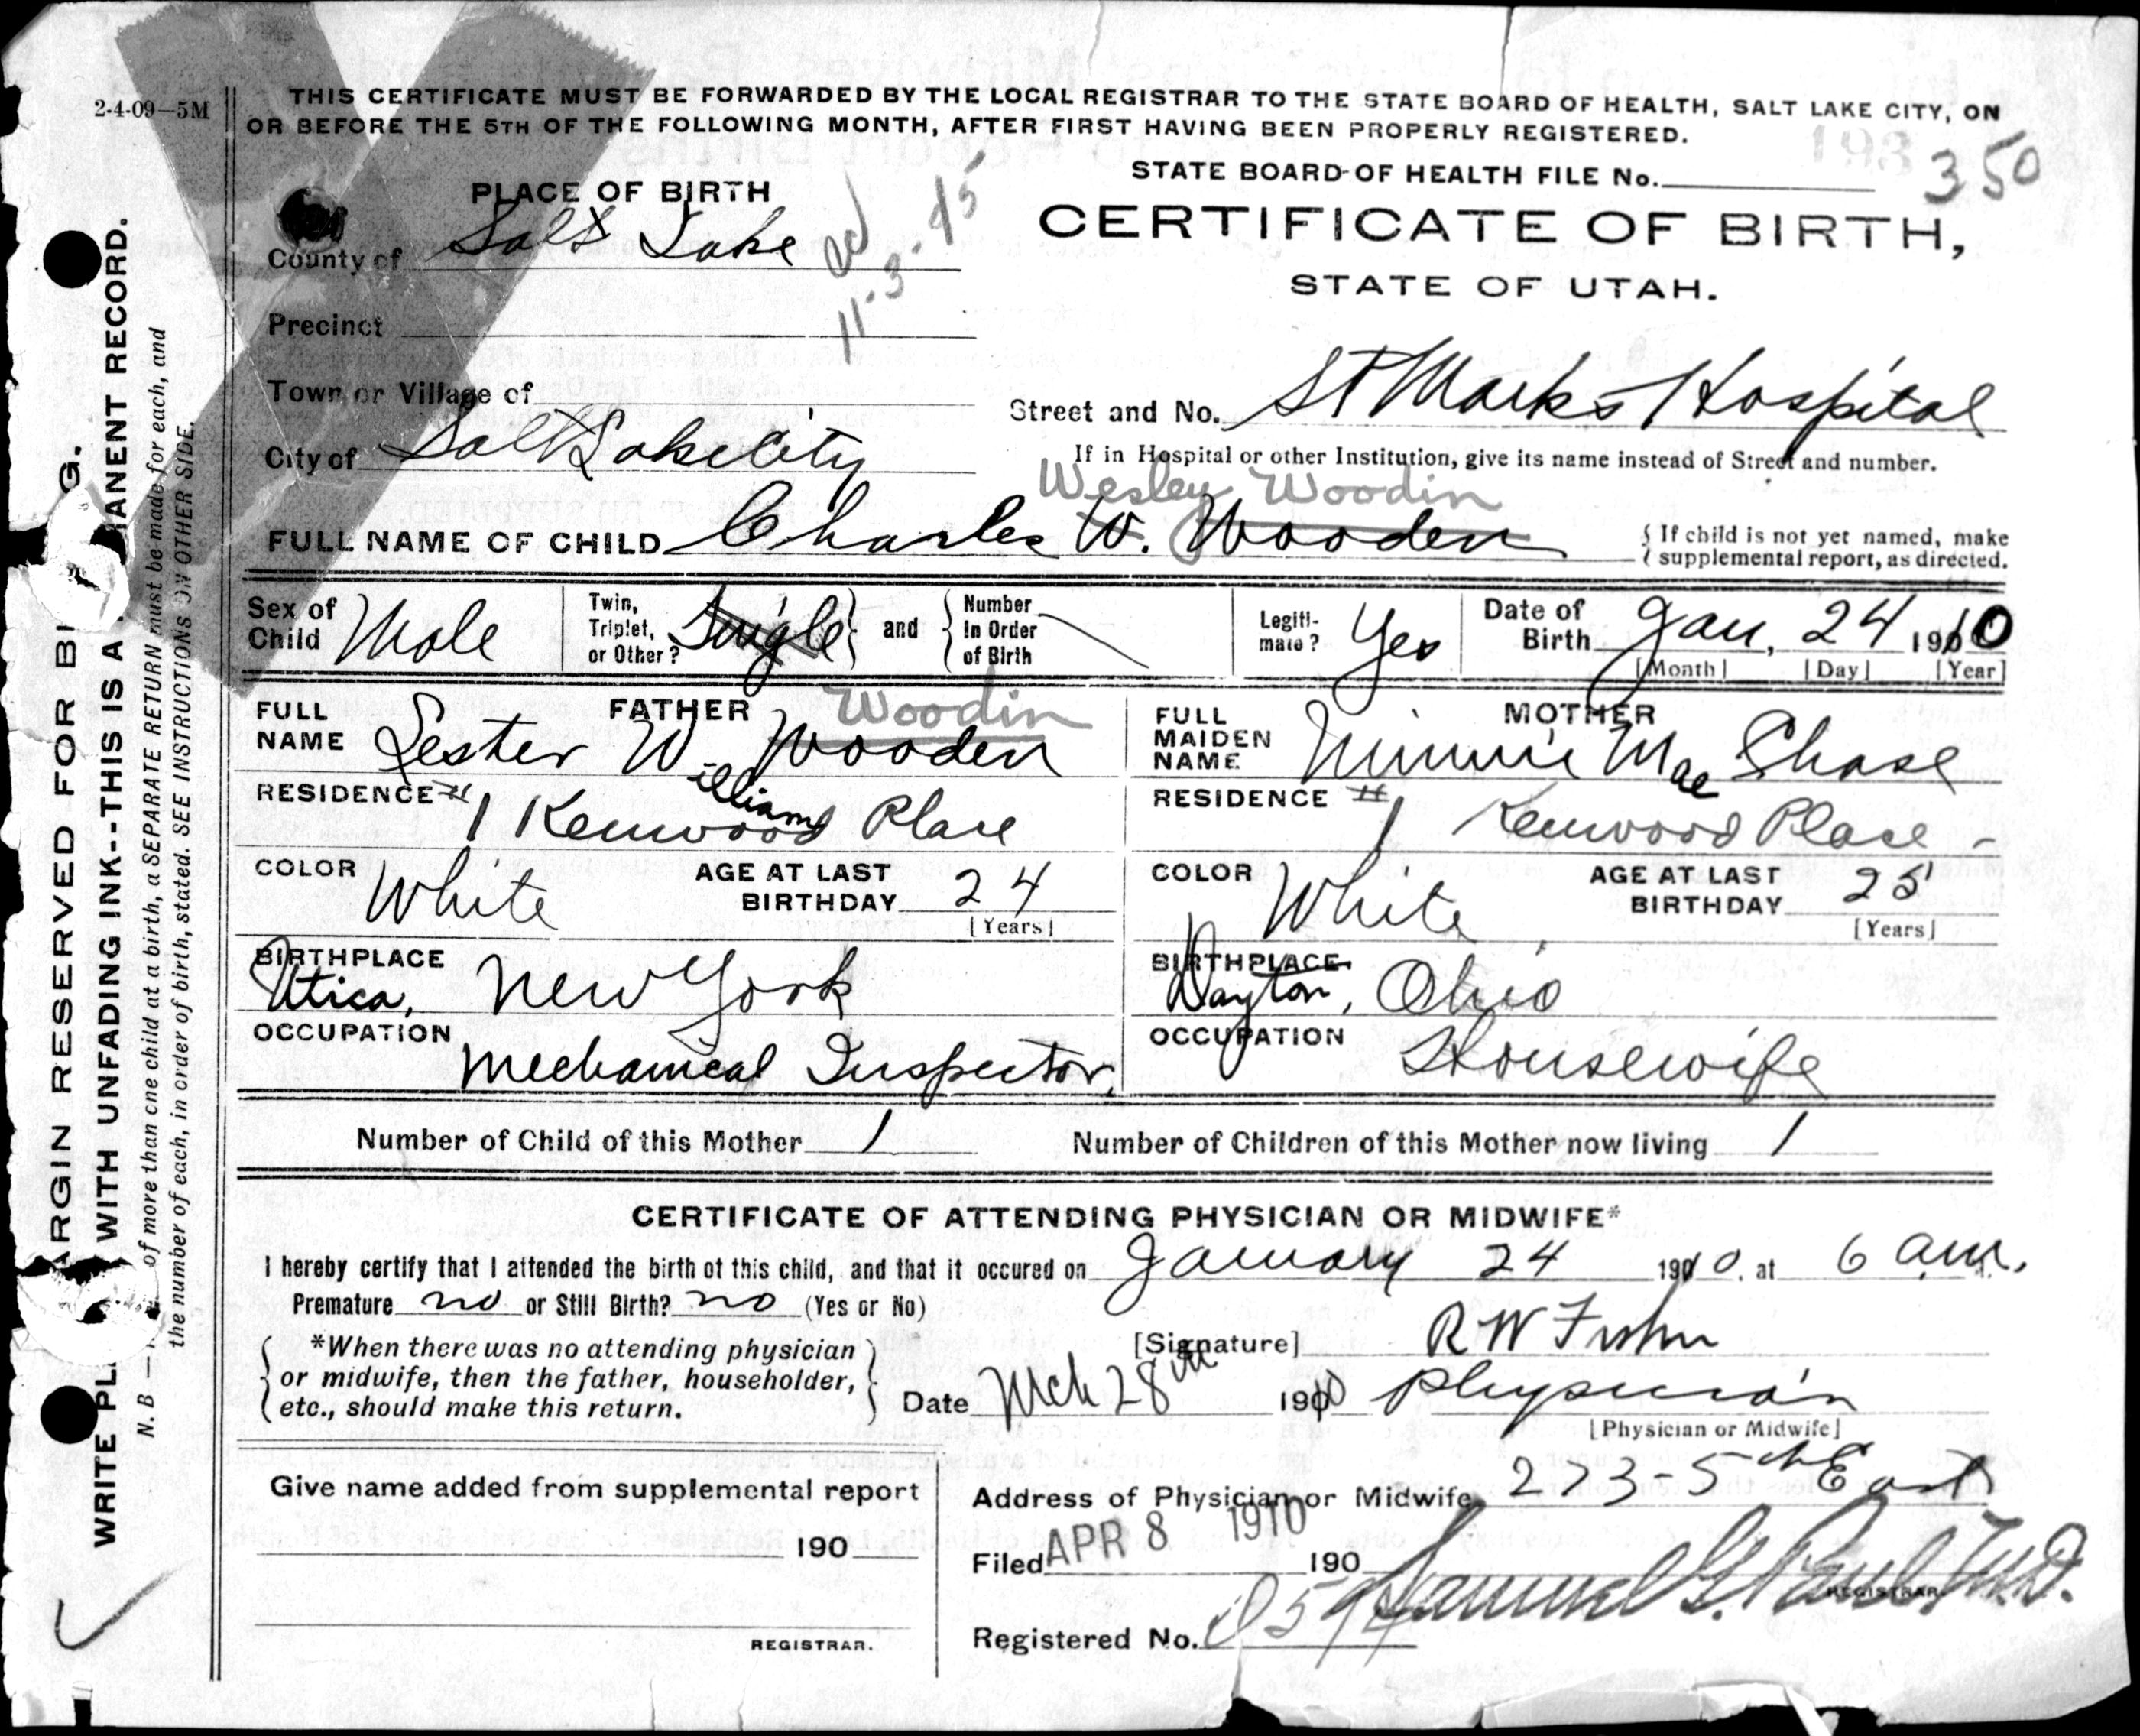 2-4-09—5M
THIS CERTIFICATE MUST BE FORWARDED BY THE LOCAL REGISTRAR TO THE STATE BOARD OF HEALTH, SALT LAKE CITY, ON
OR BEFORE THE 5TH OF THE FOLLOWING MONTH, AFTER FIRST HAVING BEEN PROPERLY REGISTERED.
STATE BOARD OF HEALTH FILE No. 350
PLACE OF BIRTH
CERTIFICATE OF BIRTH,
STATE OF UTAH.
County of Salt Lake
11-3-45
Precinct
Town or Village of
Street and No. St Marks Hospital
City of Salt Lake City
If in Hospital or other Institution, give its name instead of Street and number.
Wesley Woodin
FULL NAME OF CHILD Charles W. Wooden
{ If child is not yet named, make
supplemental report, as directed.
Sex of Child Male
Twin, Triplet, or Other? Single } and { Number In Order of Birth
Legiti-mate? Yes
Date of Birth Jan, 24 1910
[Month] [Day] [Year]
FATHER
Woodin
FULL NAME Lester W Wooden
illiam
RESIDENCE #1 Kenwood Place
COLOR White
AGE AT LAST BIRTHDAY 24
[Years]
BIRTHPLACE
Utica, New York
OCCUPATION
Mechanical Inspector.
MOTHER
FULL MAIDEN NAME Minnie Mae Shase
RESIDENCE #1 Kenwood Place -
COLOR White
AGE AT LAST BIRTHDAY 25
[Years]
BIRTHPLACE
Dayton, Ohio
OCCUPATION
Housewife
Number of Child of this Mother 1
Number of Children of this Mother now living 1
CERTIFICATE OF ATTENDING PHYSICIAN OR MIDWIFE*
I hereby certify that I attended the birth of this child, and that it occured on January 24 1910, at 6 a.m.
Premature no or Still Birth? no (Yes or No)
*When there was no attending physician
or midwife, then the father, householder,
etc., should make this return.
[Signature] R W
Date Mch 28th 1910
Physician
[Physician or Midwife]
Address of Physician or Midwife 273-5th East
Give name added from supplemental report
190
REGISTRAR.
Filed APR 8 1910 190
Samuel G. Paul M.D.
REGISTRAR.
Registered No.
ARGIN RESERVED FOR BI G.
WRITE PL WITH UNFADING INK--THIS IS A MANENT RECORD.
N. B — of more than one child at a birth, a SEPARATE RETURN must be made for each, and
the number of each, in order of birth, stated. SEE INSTRUCTIONS ON OTHER SIDE.